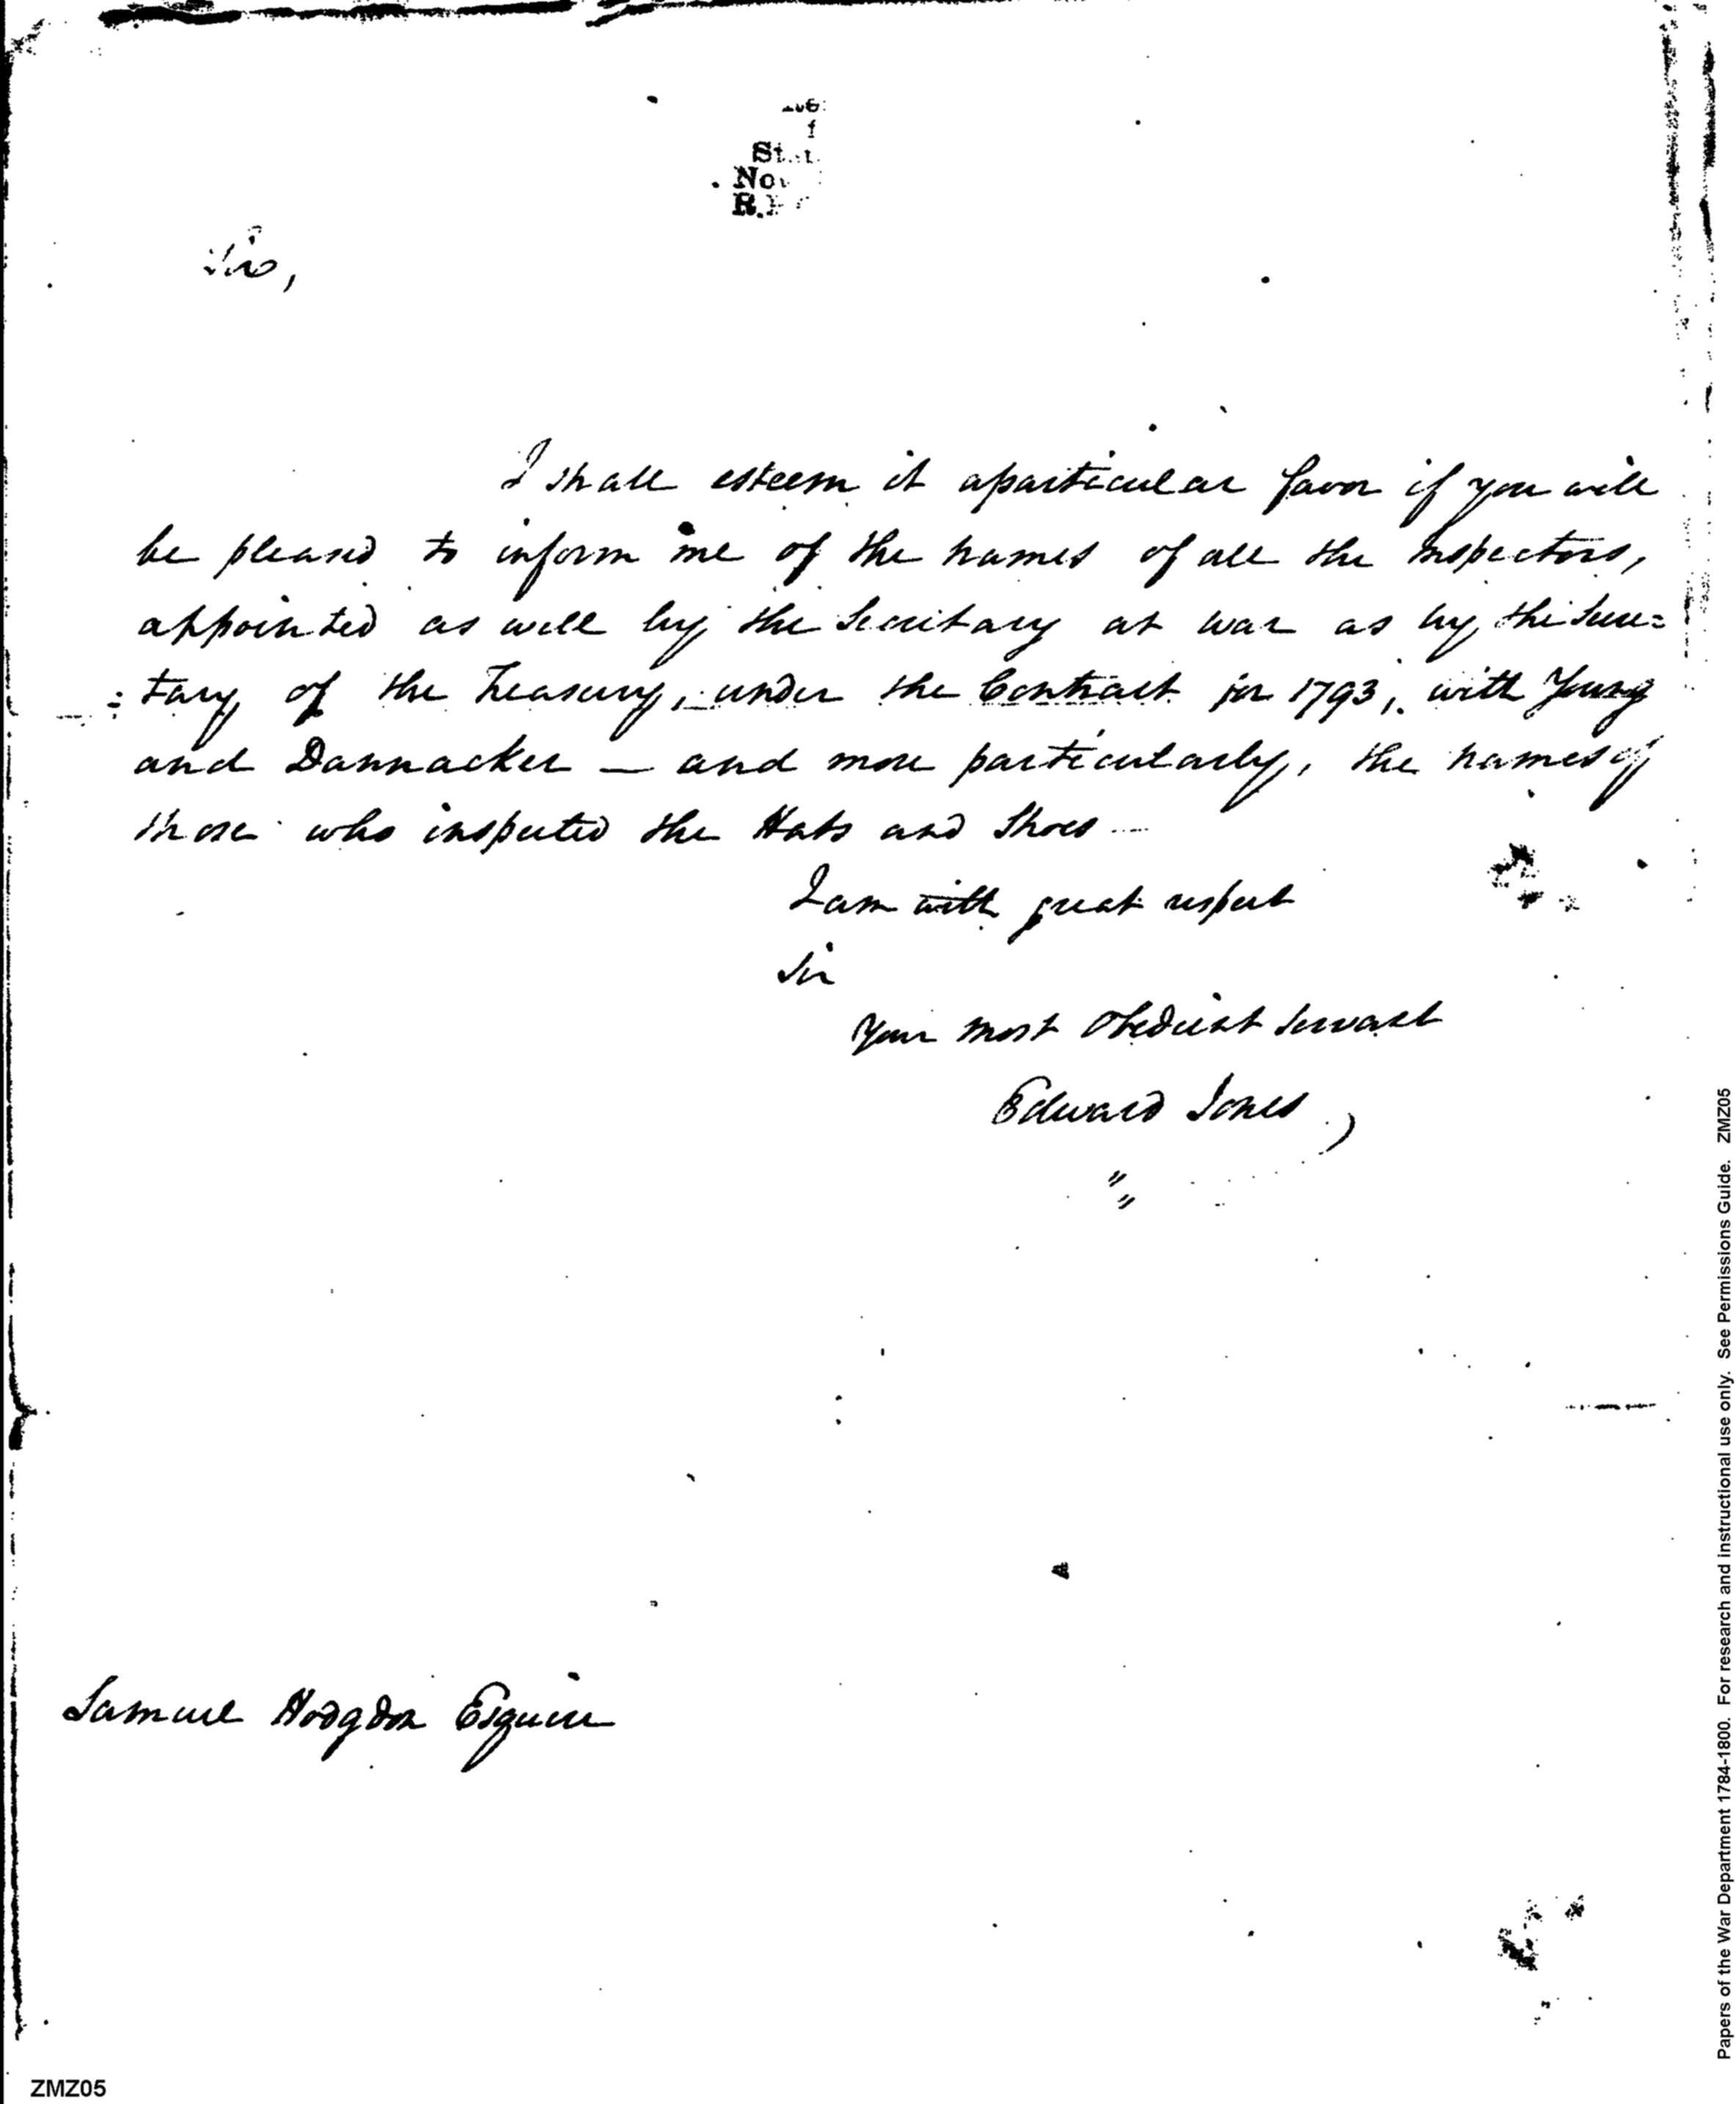 Sir,
I shall esteem it a particular favor if you will
be pleased to inform me of the names of all the Inspectors,
appointed as well by the Secritary at war as by the Secre=
=tary of the Treasury, under the Contract for 1793, with Young
and Dannacker — and more particularly, the names of
those who inspected the Hats and Shoes —
I am with great respect
Sir
Your most Obedient Servant
Edward Jones
Samuel Hodgdon Esquire
ZMZ05
Papers of the War Department 1784-1800. For research and instructional use only. See Permissions Guide. ZMZ05